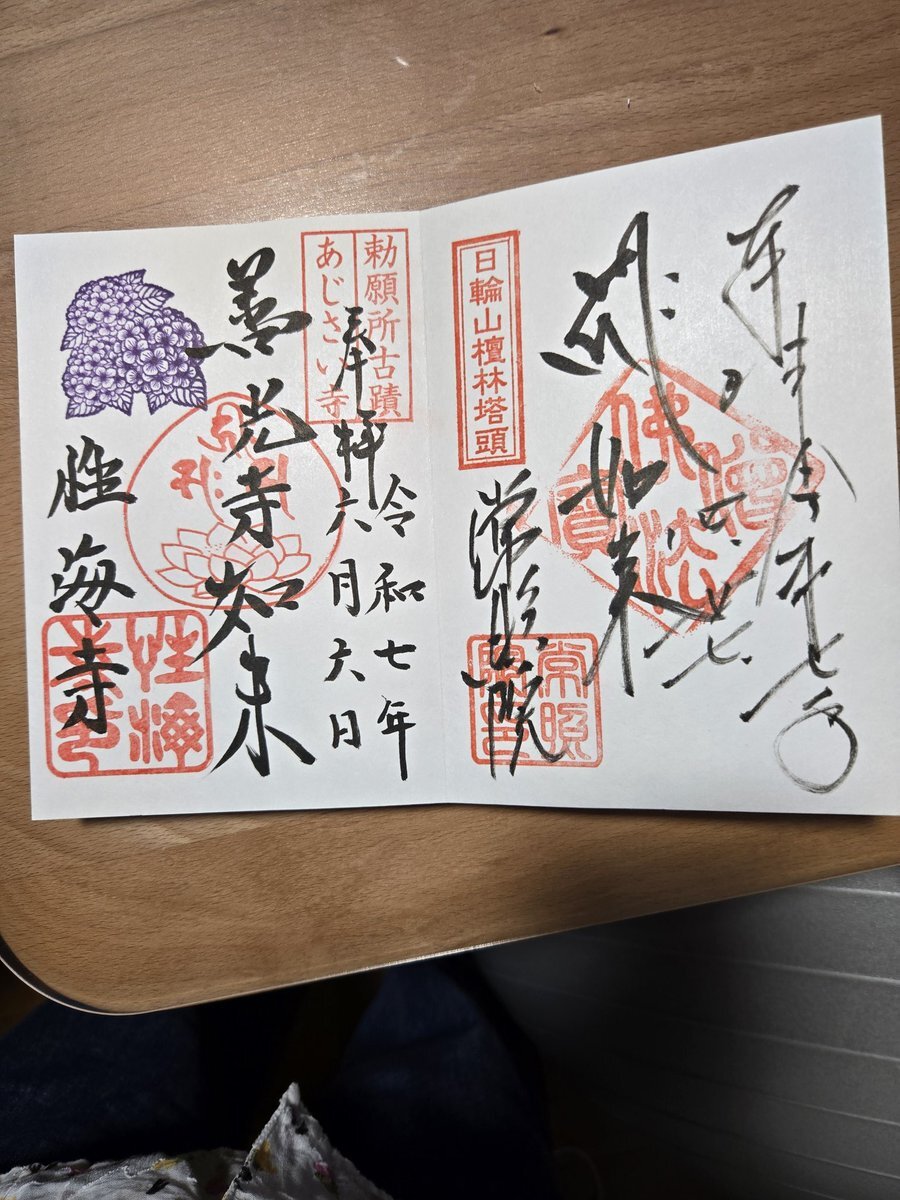 令和七年
佛法僧寶
如来
日輪山檀林塔頭
常照院
勅願所古蹟
あじさい寺
奉拝
令和七年
六月六日
善光寺如来
性海寺